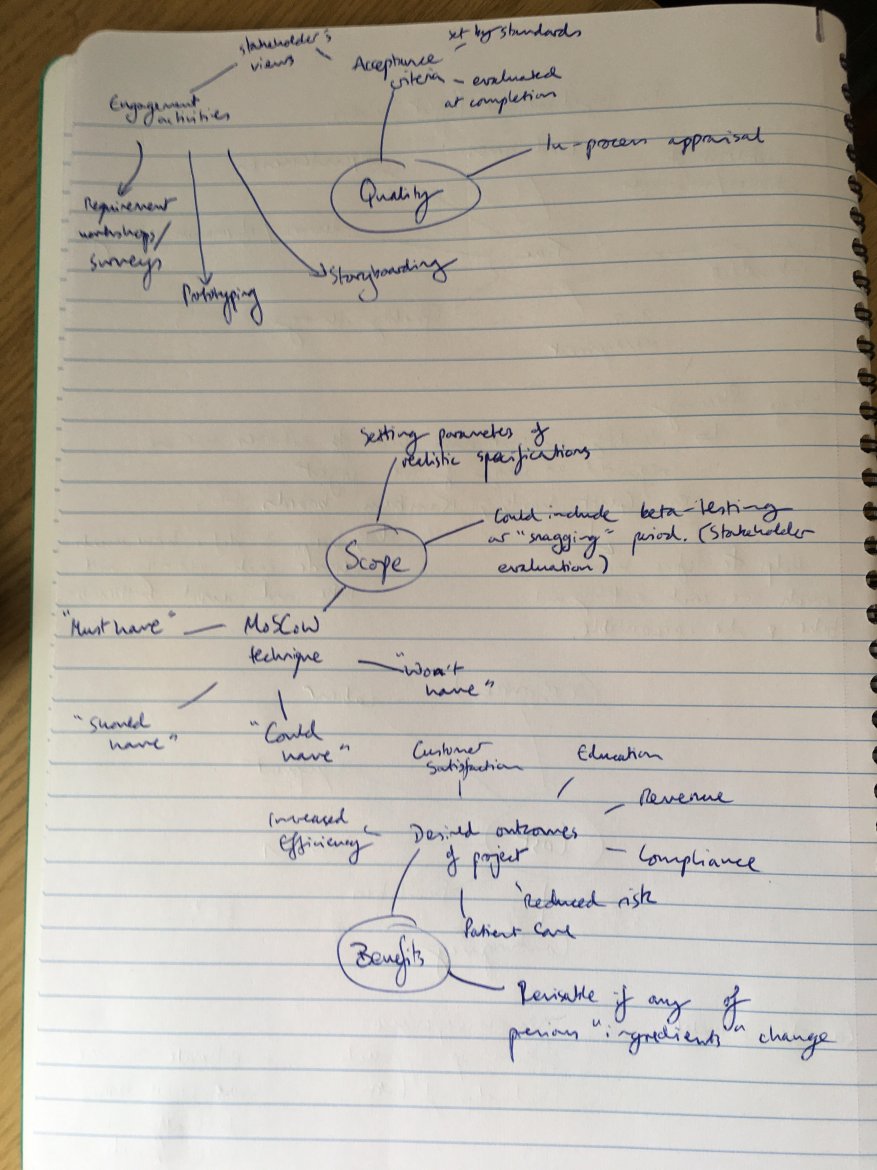 stakeholder's
views
Acceptance
criteria
set by standards
- evaluated
at completion
Engagement
activities
In-process appraisal
Quality
Requirement
workshops/
surveys
Prototyping
Storyboarding
Setting parameters of
realistic specifications
Could include beta-testing
or "snagging" period. (Stakeholder
evaluation)
Scope
"Must have"
MoSCoW
technique
"Won't
have"
"Should
have"
"Could
have"
Customer
Satisfaction
Education
Revenue
Increased
Efficiency
Desired outcomes
of project
Compliance
Reduced risk
Patient Care
Benefits
Revisable if any of
previous "ingredients" change